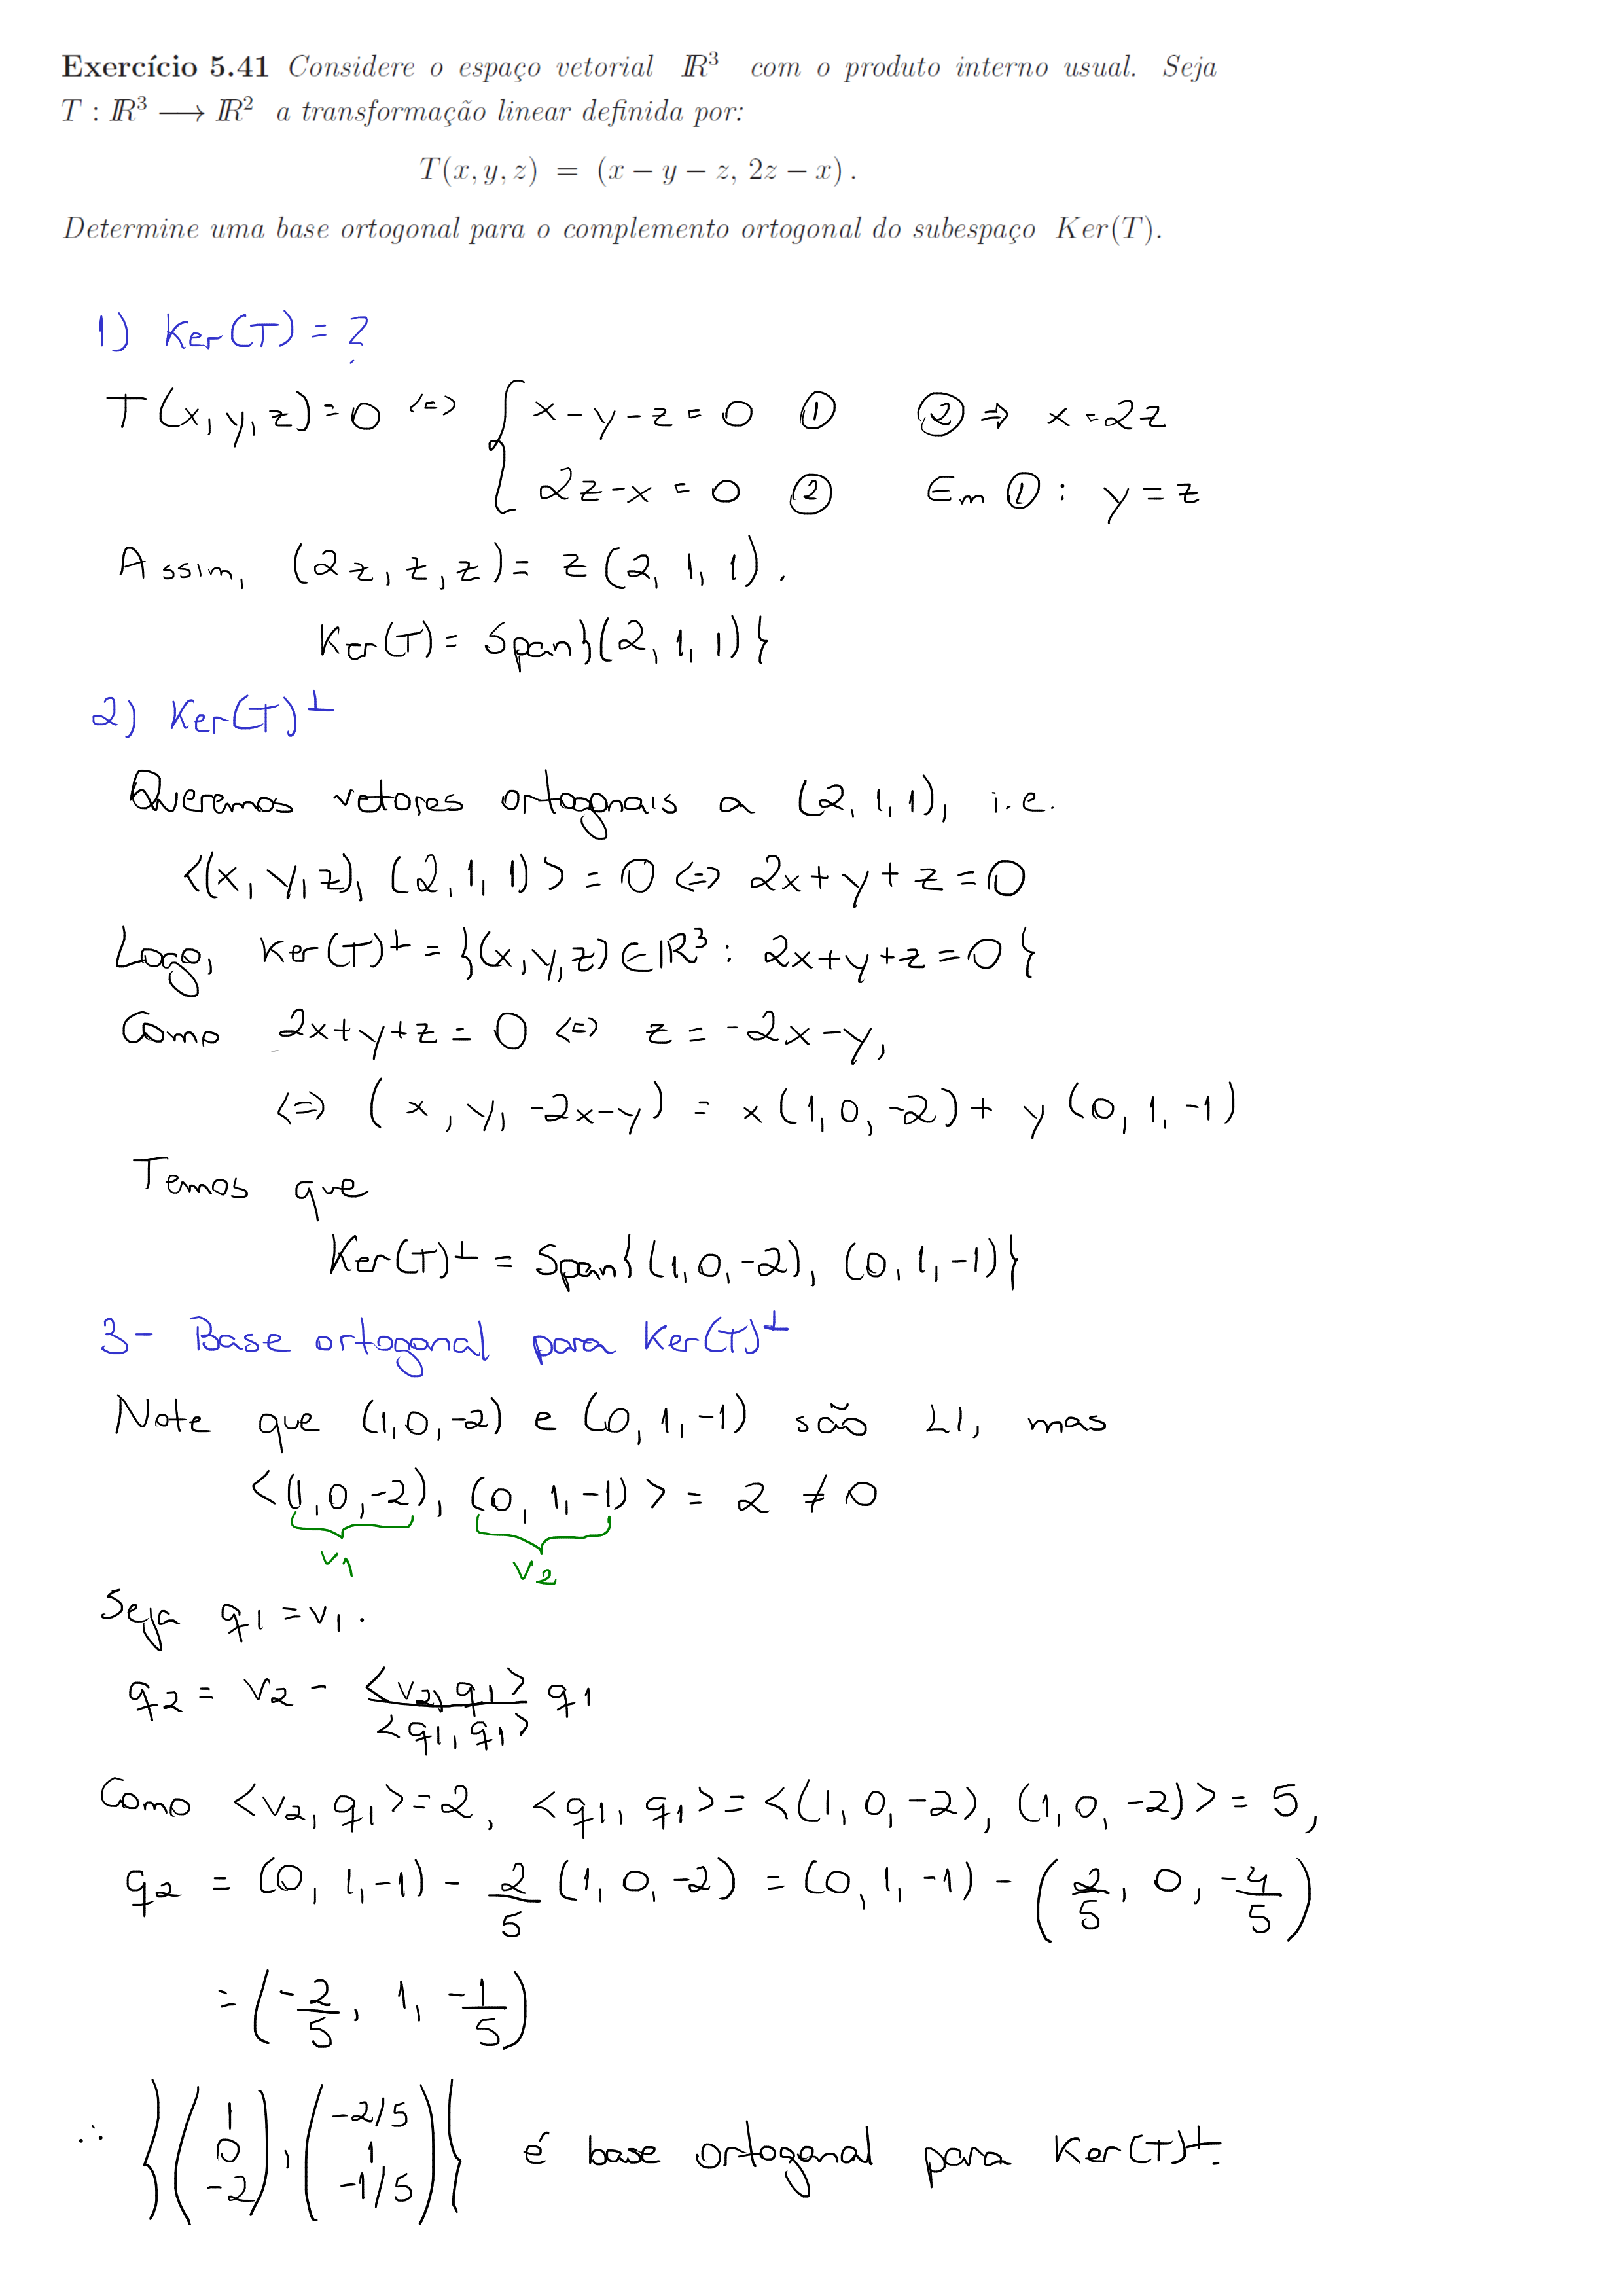 Exercício 5.41 Considere o espaço vetorial ℝ³ com o produto interno usual. Seja
T : ℝ³ ⟶ ℝ² a transformação linear definida por:
T(x, y, z) = (x − y − z, 2z − x).
Determine uma base ortogonal para o complemento ortogonal do subespaço Ker(T).
1) Ker(T) = ?
T(x, y, z) = 0 <=> { x - y - z = 0 ① ② => x = 2z
2z - x = 0 ② Em ① : y = z
Assim, (2z, z, z) = z(2, 1, 1).
Ker(T) = Span{(2, 1, 1)}
2) Ker(T)⊥
Queremos vetores ortogonais a (2, 1, 1), i.e.
<(x, y, z), (2, 1, 1)> = 0 <=> 2x + y + z = 0
Logo, Ker(T)⊥ = {(x, y, z) ∈ ℝ³ : 2x + y + z = 0}
Como 2x + y + z = 0 <=> z = -2x - y,
<=> (x, y, -2x-y) = x(1, 0, -2) + y(0, 1, -1)
Temos que
Ker(T)⊥ = Span{(1, 0, -2), (0, 1, -1)}
3- Base ortogonal para Ker(T)⊥
Note que (1, 0, -2) e (0, 1, -1) são LI, mas
<(1, 0, -2), (0, 1, -1)> = 2 ≠ 0
v1 v2
Seja q1 = v1.
q2 = v2 - <v2, q1>/<q1, q1> q1
Como <v2, q1> = 2, <q1, q1> = <(1, 0, -2), (1, 0, -2)> = 5,
q2 = (0, 1, -1) - 2/5 (1, 0, -2) = (0, 1, -1) - (2/5, 0, -4/5)
= (-2/5, 1, -1/5)
∴ {(1 0 -2), (-2/5 1 -1/5)} é base ortogonal para Ker(T)⊥.